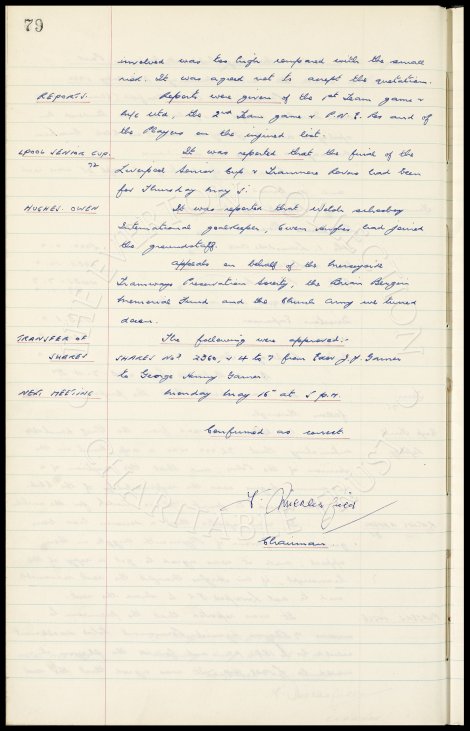 79
involved was too high compared with the small
risk. It was agreed not to accept the quotation.
REPORTS. Reports were given of the 1st Team game v
utd, the 2nd Team game v P.N.E. Res and of
the Players on the injured list.
LPOOL SENIOR CUP. It was reported that the final of the
72
Liverpool Senior Cup v Tranmere Rovers had been
for Thursday May
HUGHES. OWEN It was reported that Welsh schoolboy
International goalkeeper, Owen Hughes had joined
the groundstaff.
Appeals on behalf of the Merseyside
Tramways Preservation Society, the Brian Bergin
Memorial Fund and the Church Army we turned
down.
TRANSFER OF The following were approved:-
SHARES SHARES Nos 2360, & 4 to 7 from Exor J. H. Garner
to George Henry Garner.
NEXT MEETING Monday May 15 at 5 p.m.
Confirmed as correct
Chairman
THE EVERTON COLLECTION
CHARITABLE TRUST